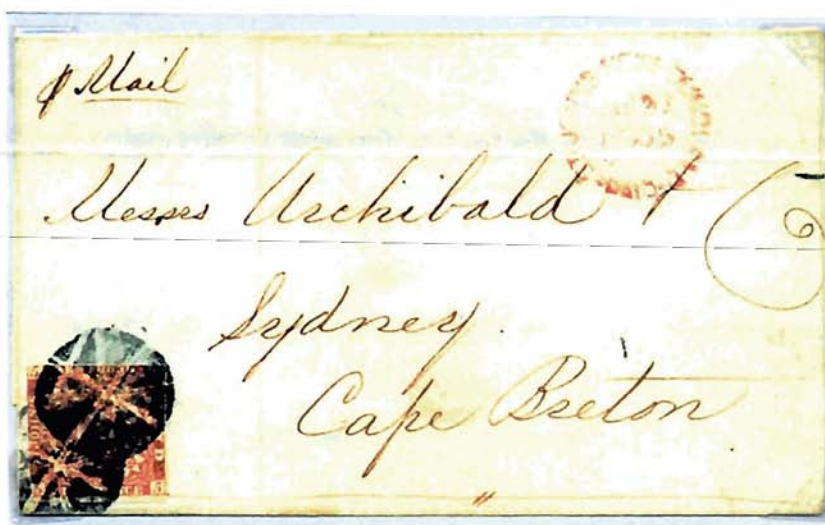 p Mail
Messrs Archibald + Co
Sydney.
Cape Breton